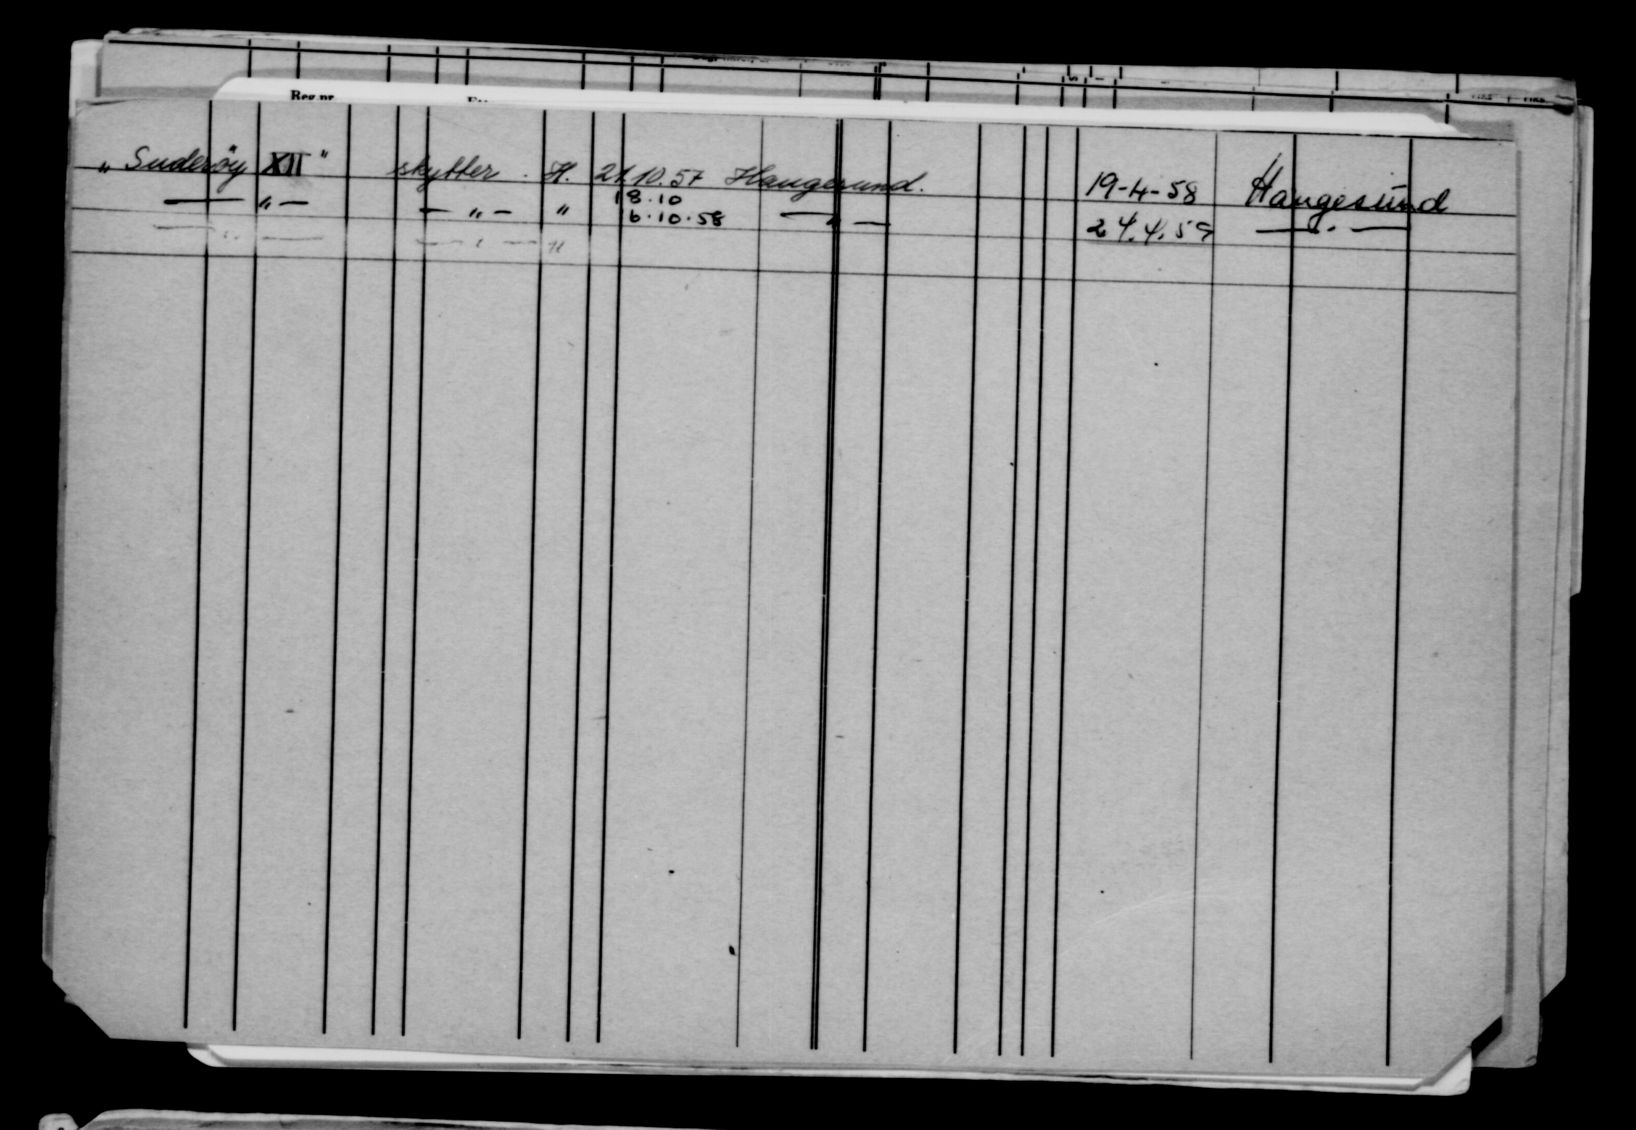 Reg.nr.
„ Suderöy XII " skytter . H. 21.10.57 Haugesund. 19-4-58 Haugesund
— „ — — „ — " 18.10
16.10.58 — „ — 24.4.59 — „ —
— „ — — „ — "